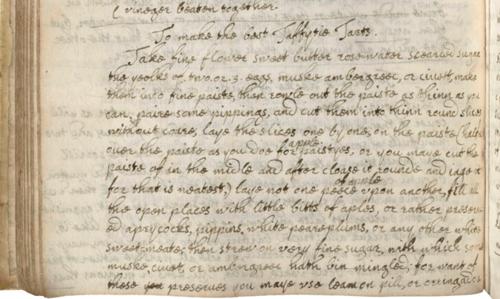 ( vineger beaten together.
To make the best Taffytie Tarts.
Take fine flower sweet butter rose water scearced suger
the yeolks of two. or. 3. eggs, muske ambergreec, or civet, make
them into fine paiste, then rowle out the paiste as thinn as you
can, paire some pippings, and cut them into thinn round slices
without coare, laye the slices one by one, on the paiste,
apple
over the paiste as you doe for paistyes, or you maye cut the
paiste of in the midle and after close it rounde and
for that is neatest,) laye not one peece upon another, fill all
of apple
the open places with little bitts of aples, or rather preserv-
ed aprycocks, pippins, white peareplums, or any other white
sweet-meate; then strew on very fine suger, with which som
muske, civet, or ambergreec hath bin mingled; for want of
these preserves you maye use leamon pill, or orringado